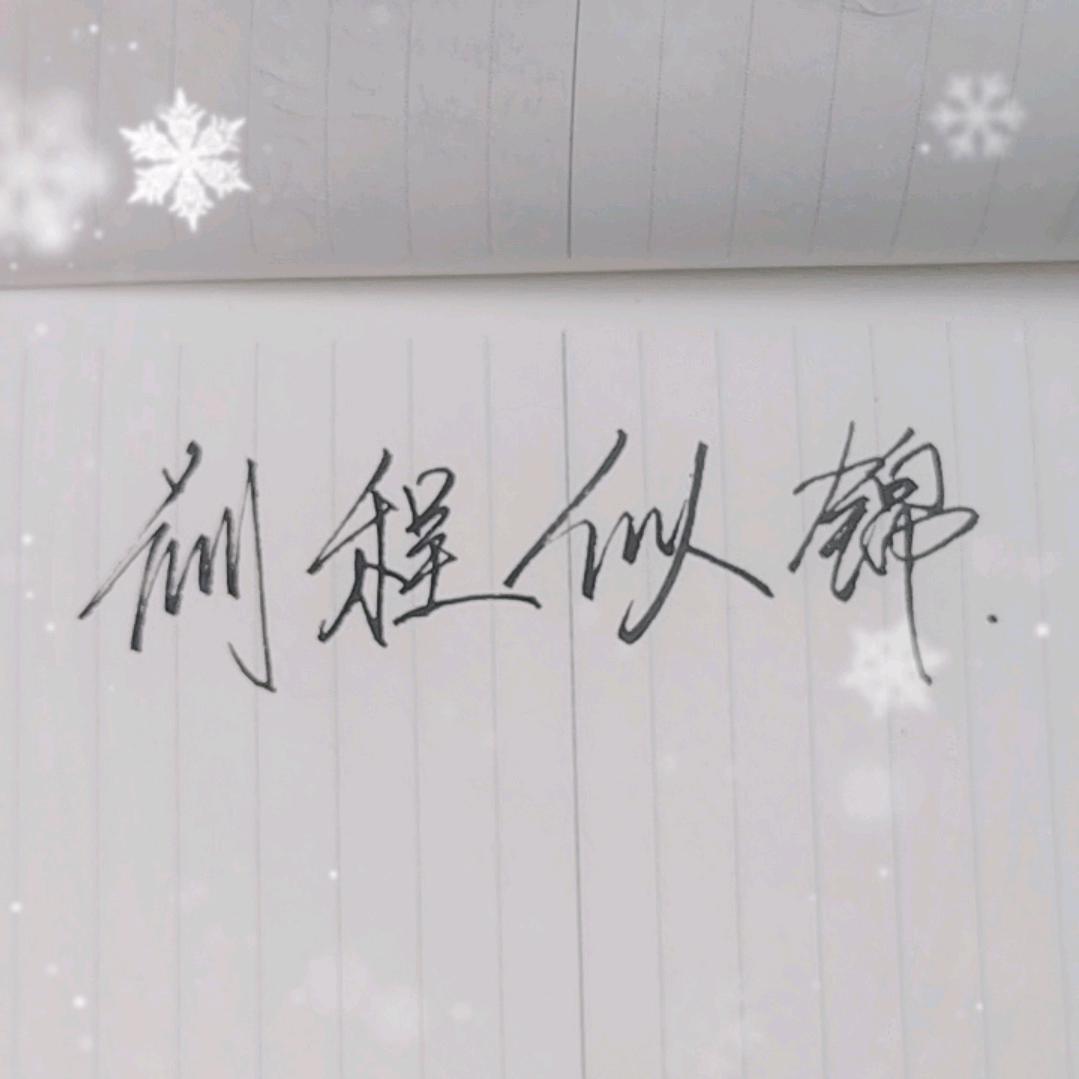 前程似锦.